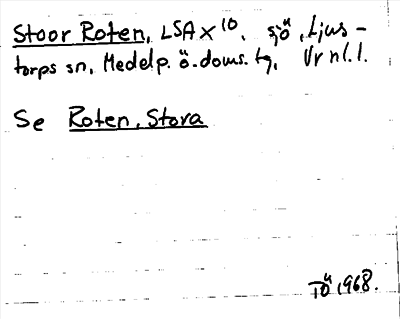 Stoor Roten, LSA X 10. sjö, Ljus-
torps sn, Medelp. ö. doms. tg,
Se Roten, Stora
TÖ 1968.